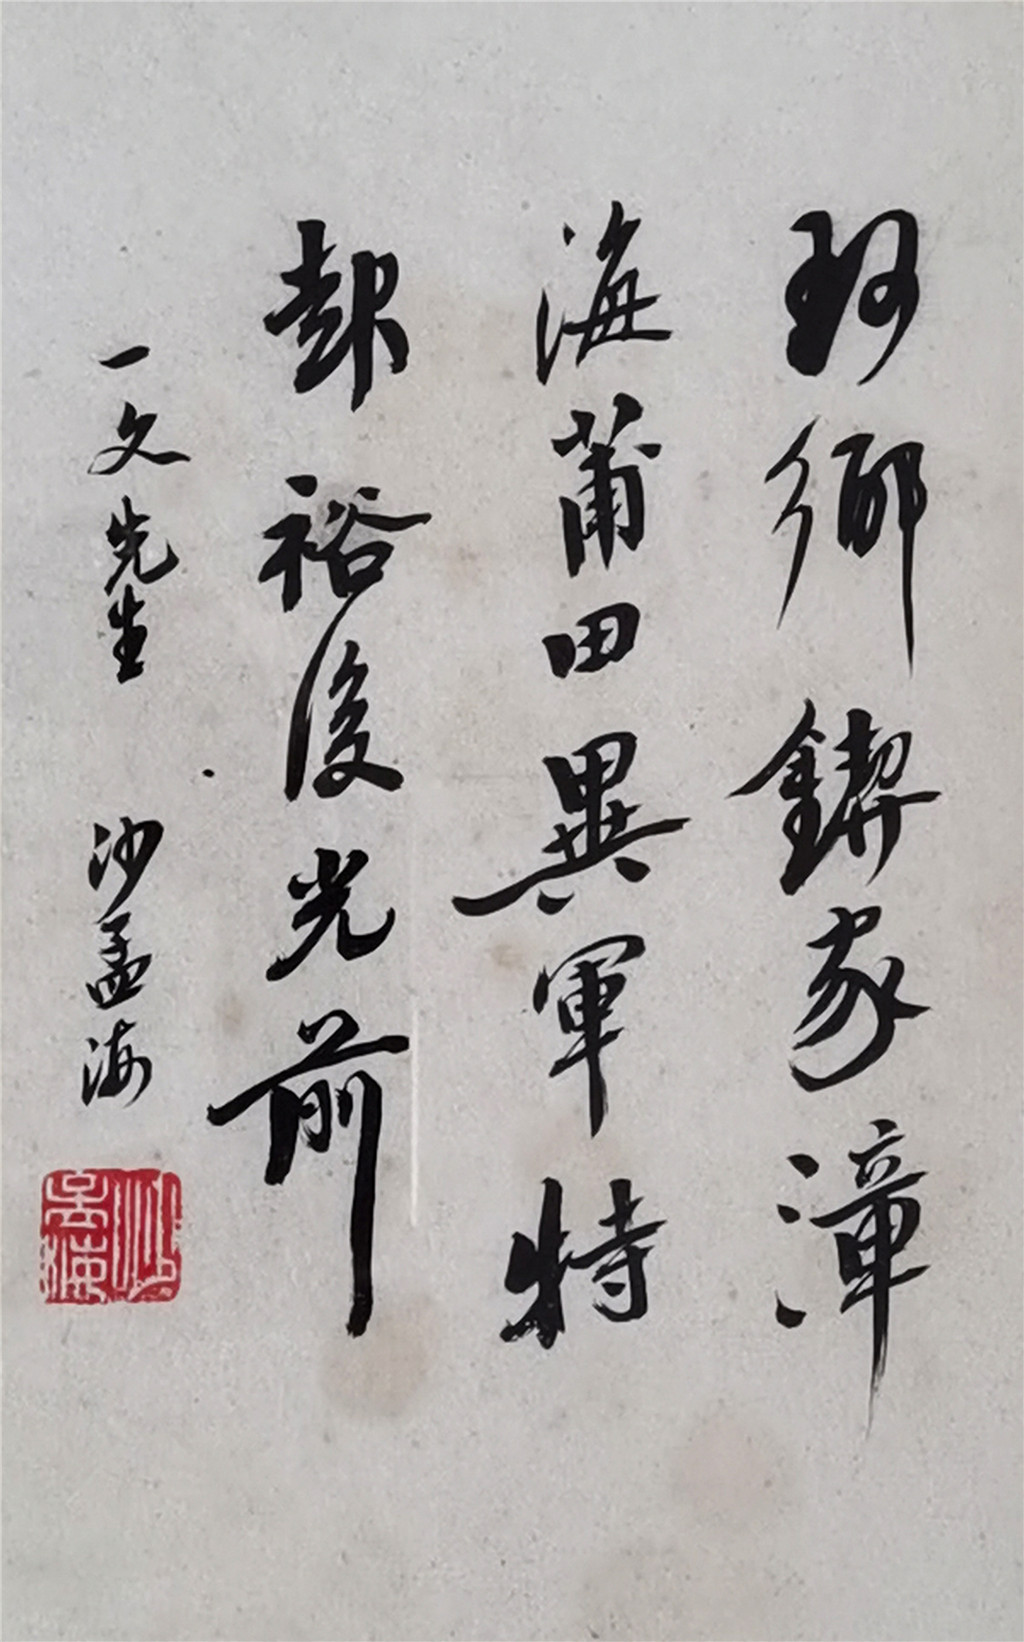 珂鄉鍥家漳
海莆田異軍特
起裕後光前
一文先生 沙孟海
沙孟海